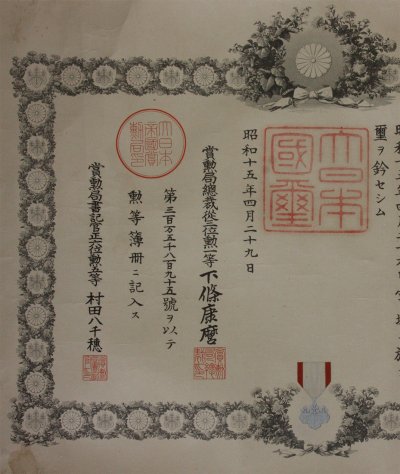 璽ヲ鈐セシム
大日本國璽
昭和十五年四月二十九日
賞勲局總裁從三位勲一等 下條康麿
第三百五十八百九十五號ヲ以テ
勲等簿册ニ記入ス
賞勲局書記官正六位勲五等 村田八千穂